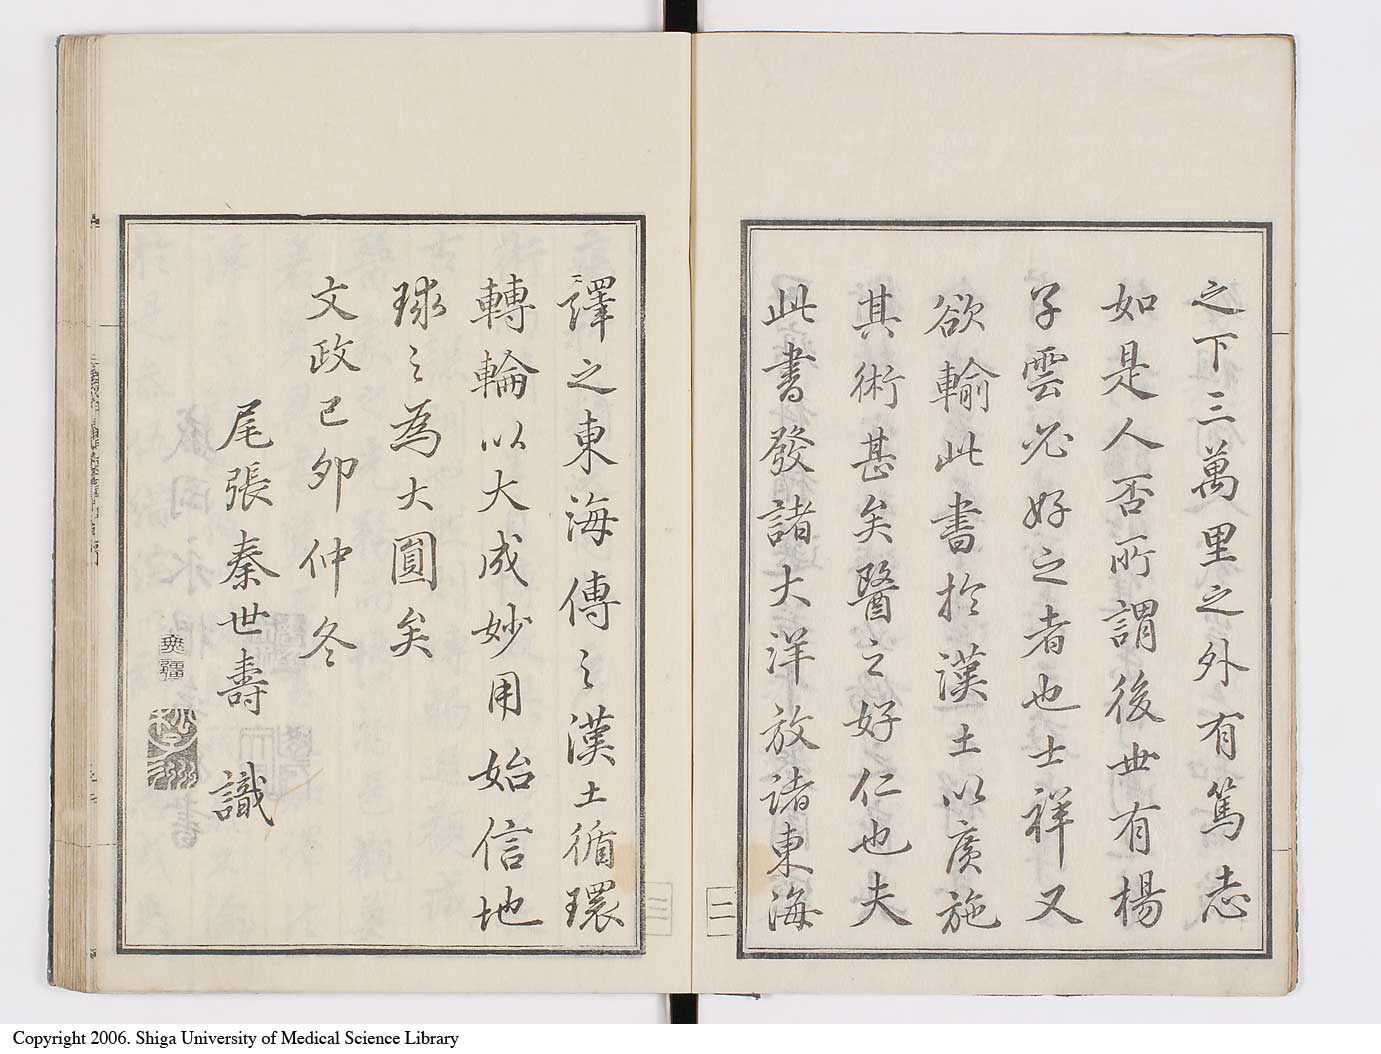 之下三萬里之外有篤志
如是人否所謂後世有楊
子雲必好之者也士祥又
欲輸此書於漢土以廣施
其術甚矣醫之好仁也夫
此書發諸大洋放諸東海
譯之東海傳之漢土循環
轉輪以大成妙用始信地
球之為大圓矣
文政己卯仲冬
尾張秦世壽識
無疆
二
三
Copyright 2006. Shiga University of Medical Science Library